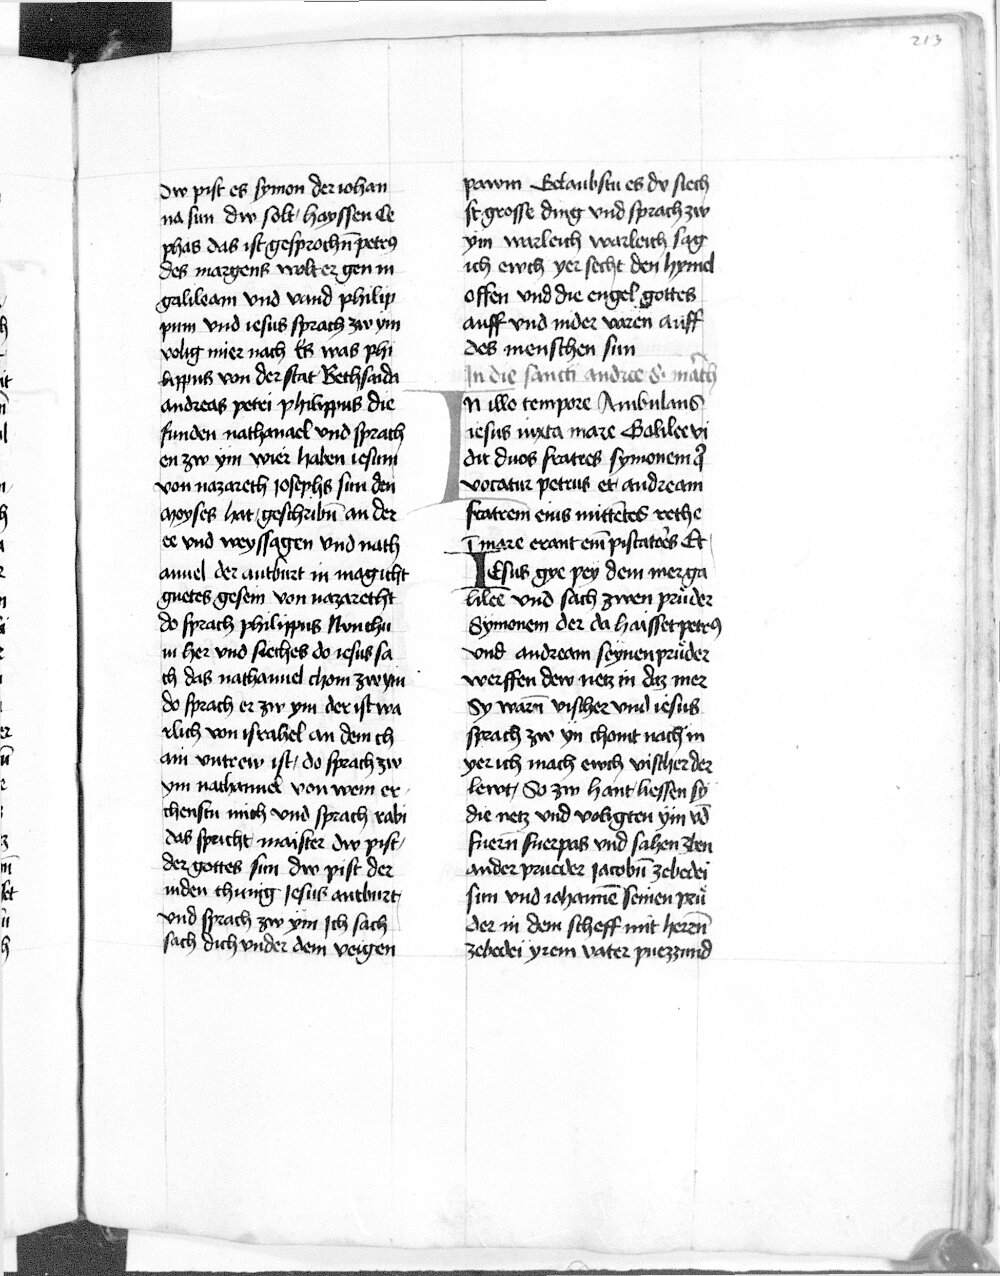 213
dw pist es symon der iohan
na sun dw solt hayssen Ce
phas das ist gesprochn̄ petrus
des margens wolt er gen in
galileam vnd vand philip
pum vnd iesus sprach zw ym
volig mier nach Es was phi
lippus von der stat Bethsaida
andreas petri philippus die
funden nathanael vnd sprach
en zw ym wier haben iesum
von nazareth iosephs sun den
moyses hat geschribn̄ an der
ee vnd weyssagen vnd nath
anuel der antburt in mag icht
guetes gesein von nazaretht
do sprach philippus Kvm thu
in her vnd sieches do iesus sa
ch das nathanuel chom zw ym
do sprach er zw ym der ist wa
rlich von israhel an dem ch
ain vntrew ist do sprach zw
ym nathanuel von wem er
chenstu mich vnd sprach rabi
das spricht maister dw pist
der gottes sun dw pist der
iuden chunig Jesus antburt
vnd sprach zw ym Ich sach
sach dich vnder dem veigen
pawm Gelaubstu es dv siech
st grosse ding vnd sprach zw
ym warleich warleich sag
ich ewch yer secht den hymel
offen vnd die engel gottes
auff vnd nider varen auff
des menschen sun
In die sancti andree S. math
In illo tempore Ambulans
iesus iuxta mare Galilee vi
dit duos fratres symonem q̄
vocatur petrus et andream
fratrem eius mittētes rethe
ī mare erant em̄ piscatores Et
Iesus gye pey dem mer ga
lilee vnd sach zwen prüder
Symonem der da haisset petrus
vnd andream seynen prüder
werffen dew netz in daz mer
Sy warn̄ vischer vnd iesus
sprach zw yn chomt nach m
yer ich mach ewch vischer der
lewt So zw hant liessen sy
die netz vnd volgten ym vd̄
fuern̄ fuerpas vnd sahen zben
ander prueder Jacobū zebedei
sun vnd iohannē seinen prü
der in dem scheff mit herrn̄
zebedei yrem vater puezzund